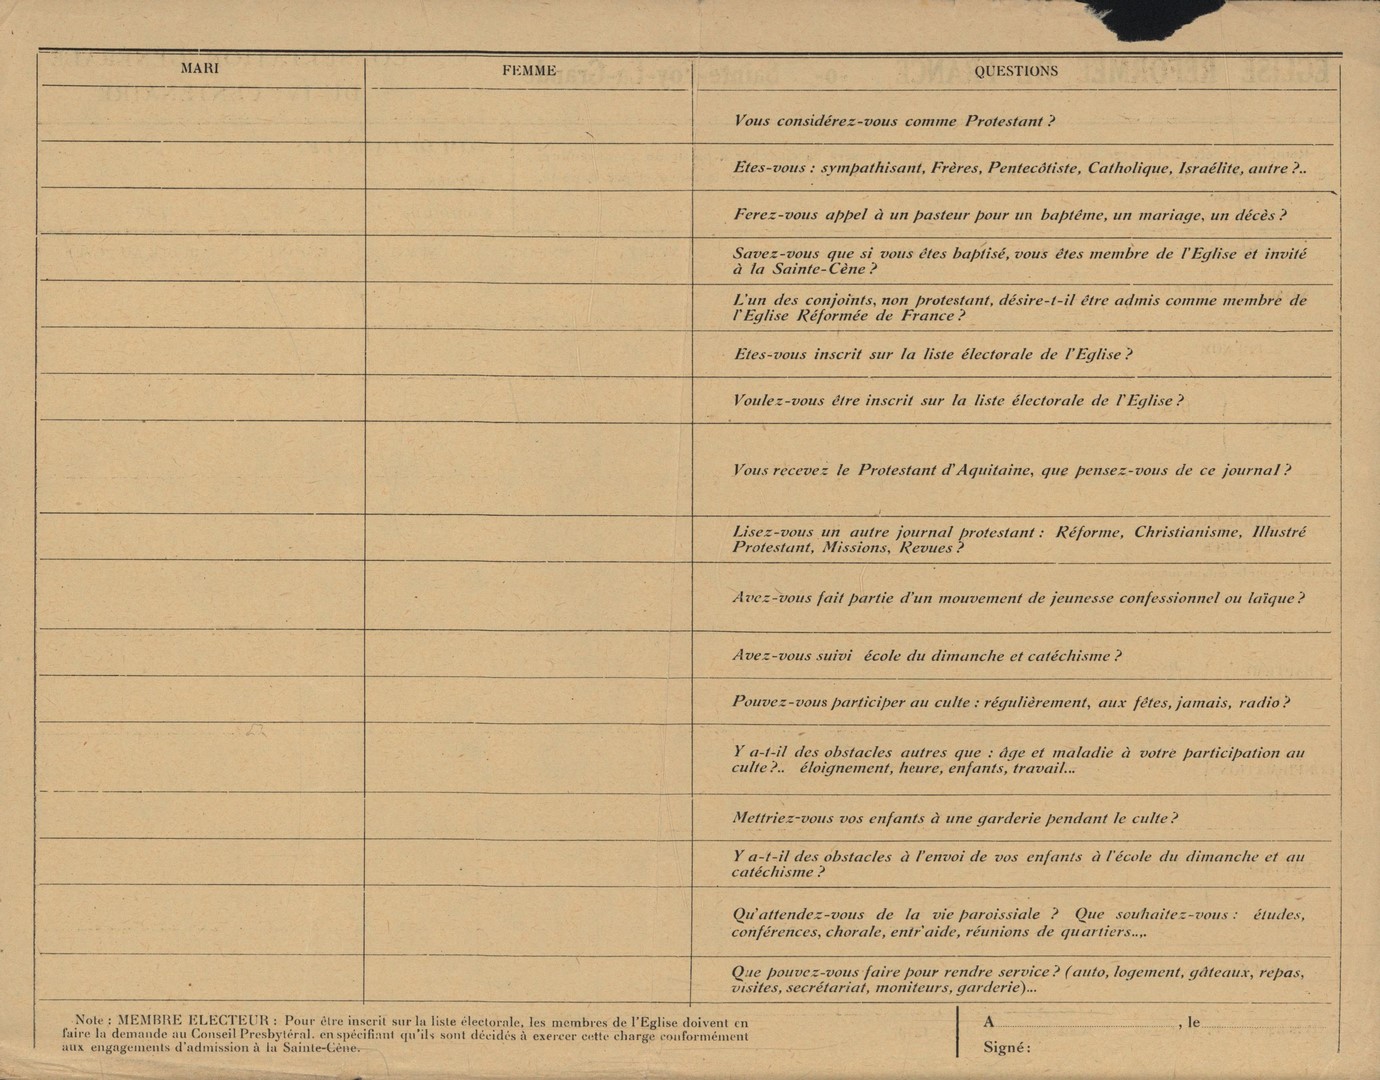 MARI FEMME QUESTIONS
Vous considérez-vous comme Protestant ?
Etes-vous : sympathisant, Frères, Pentecôtiste, Catholique, Israélite, autre ?..
Ferez-vous appel à un pasteur pour un baptême, un mariage, un décès ?
Savez-vous que si vous êtes baptisé, vous êtes membre de l'Eglise et invité
à la Sainte-Cène ?
L'un des conjoints, non protestant, désire-t-il être admis comme membre de
l'Eglise Réformée de France ?
Etes-vous inscrit sur la liste électorale de l'Eglise ?
Voulez-vous être inscrit sur la liste électorale de l'Eglise ?
Vous recevez le Protestant d'Aquitaine, que pensez-vous de ce journal ?
Lisez-vous un autre journal protestant : Réforme, Christianisme, Illustré
Protestant, Missions, Revues ?
Avez-vous fait partie d'un mouvement de jeunesse confessionnel ou laïque ?
Avez-vous suivi école du dimanche et catéchisme ?
Pouvez-vous participer au culte : régulièrement, aux fêtes, jamais, radio ?
Y a-t-il des obstacles autres que : âge et maladie à votre participation au
culte ?.. éloignement, heure, enfants, travail...
Mettriez-vous vos enfants à une garderie pendant le culte ?
Y a-t-il des obstacles à l'envoi de vos enfants à l'école du dimanche et au
catéchisme ?
Qu'attendez-vous de la vie paroissiale ? Que souhaitez-vous : études,
conférences, chorale, entr'aide, réunions de quartiers..,.
Que pouvez-vous faire pour rendre service ? (auto, logement, gâteaux, repas,
visites, secrétariat, moniteurs, garderie)...
Note : MEMBRE ELECTEUR : Pour être inscrit sur la liste électorale, les membres de l'Eglise doivent en
faire la demande au Conseil Presbytéral. en spécifiant qu'ils sont décidés à exercer cette charge conformément
aux engagements d'admission à la Sainte-Cène.
A , le
Signé :